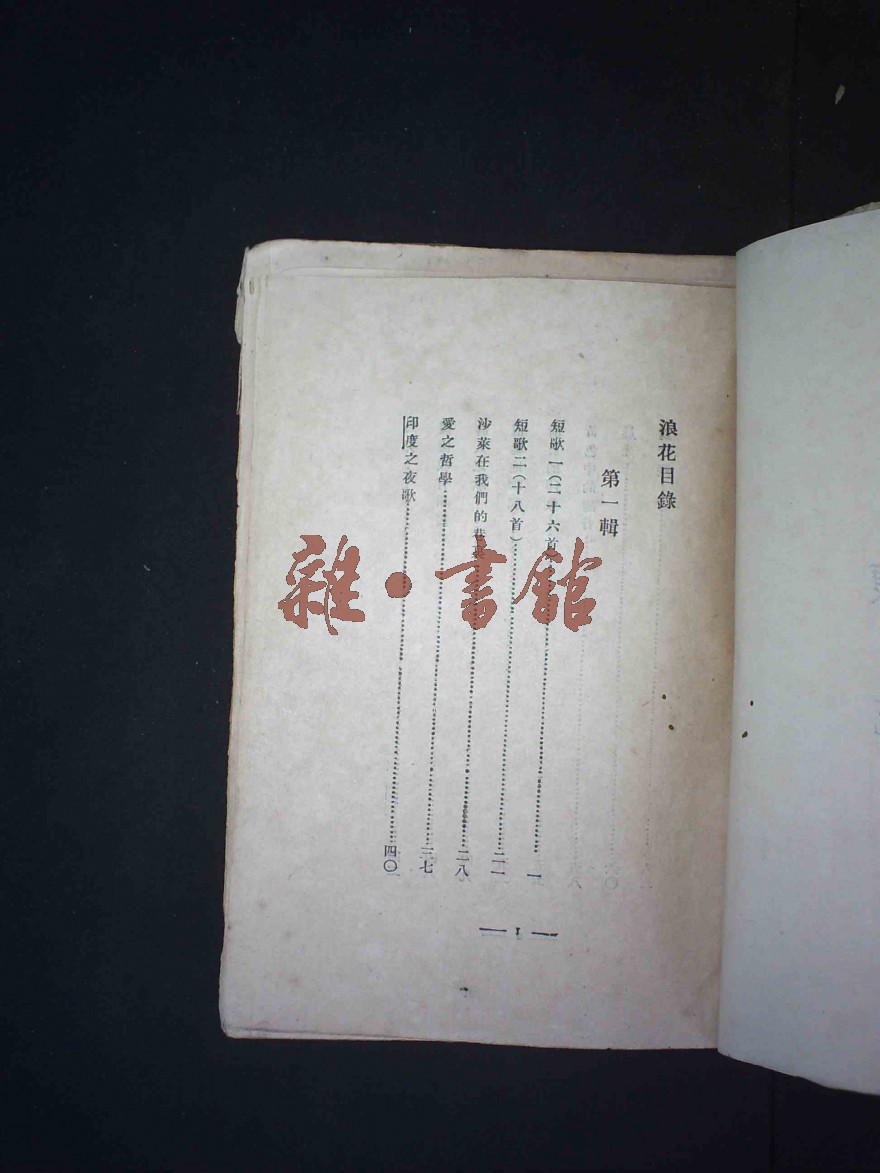 浪花目錄
第一輯
短歌一(二十六首)……一
短歌二(十八首)……二一
沙萊在我們的巷裏……二八
愛之哲學……三七
印度之夜歌……四〇
— 1 —
雜·書館